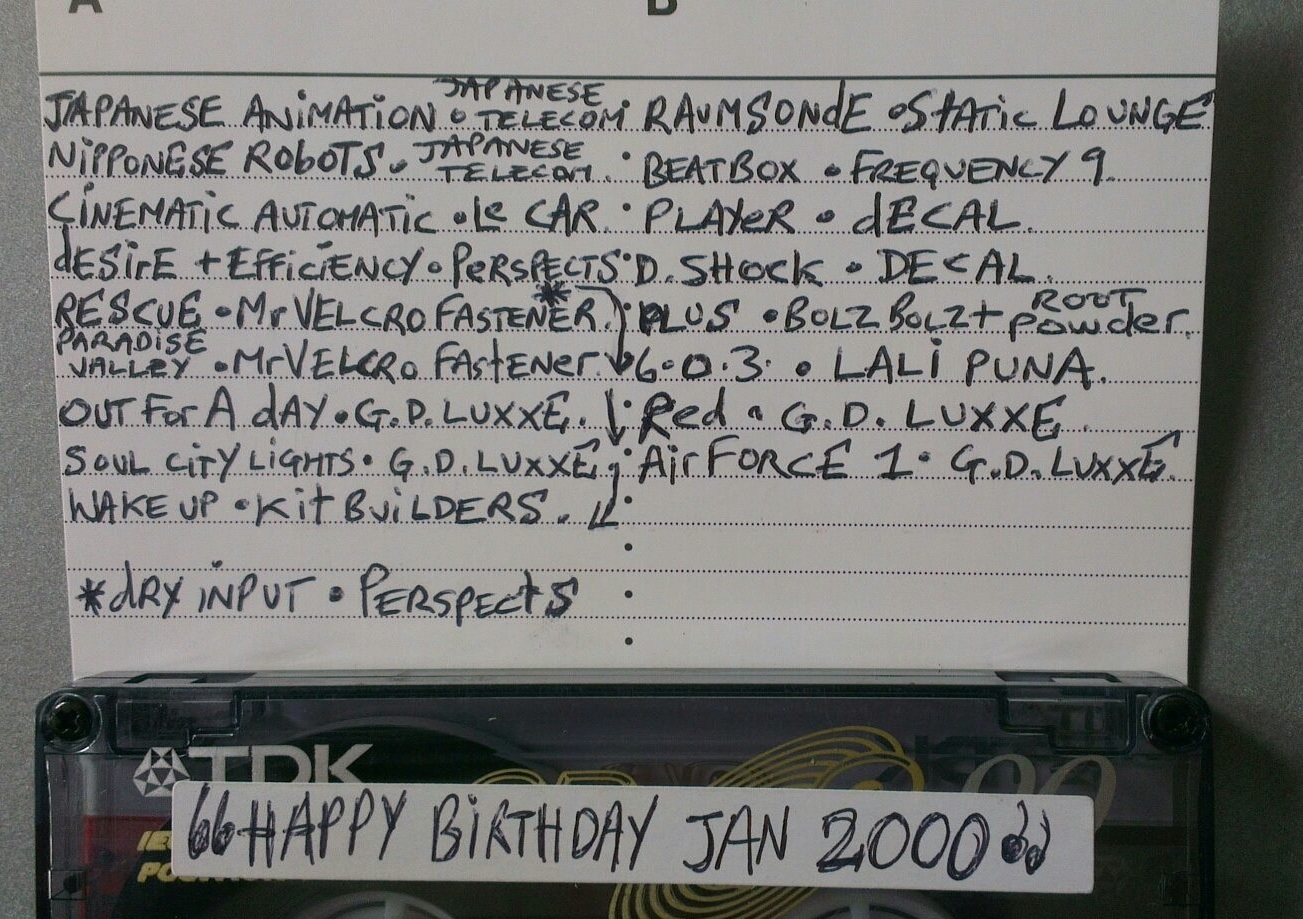 A B
JAPANESE ANIMATION • JAPANESE TELECOM • RAUMSONDE • STATIC LOUNGE
NIPPONESE ROBOTS • JAPANESE TELECOM. • BEATBOX • FREQUENCY 9.
CINEMATIC AUTOMATIC • le CAR • PLAYER • dECAL.
dESirE + EFFiCiENCY • PERSPECTS • D. SHOCK • DECAL.
RESCUE • Mr VELCRO FASTENER. * • PLUS • BOLZ BOLZ + ROOT POWDER.
PARADISE VALLEY • Mr VELCRO FAStENER. 6.0.3. • LALI PUNA.
OUT For A dAY • G.D. LUXXE. • Red • G.D. LUXXE.
SOUL CITY LIGHTS • G.D. LUXXE • Air FORCE 1 • G.D. LUXXE.
WAKE UP • Kit BUiLDERS.
* dRY iNPUT • PERSPECtS
TDK
90
"HAPPY BiRTHDAY JAN 2000"